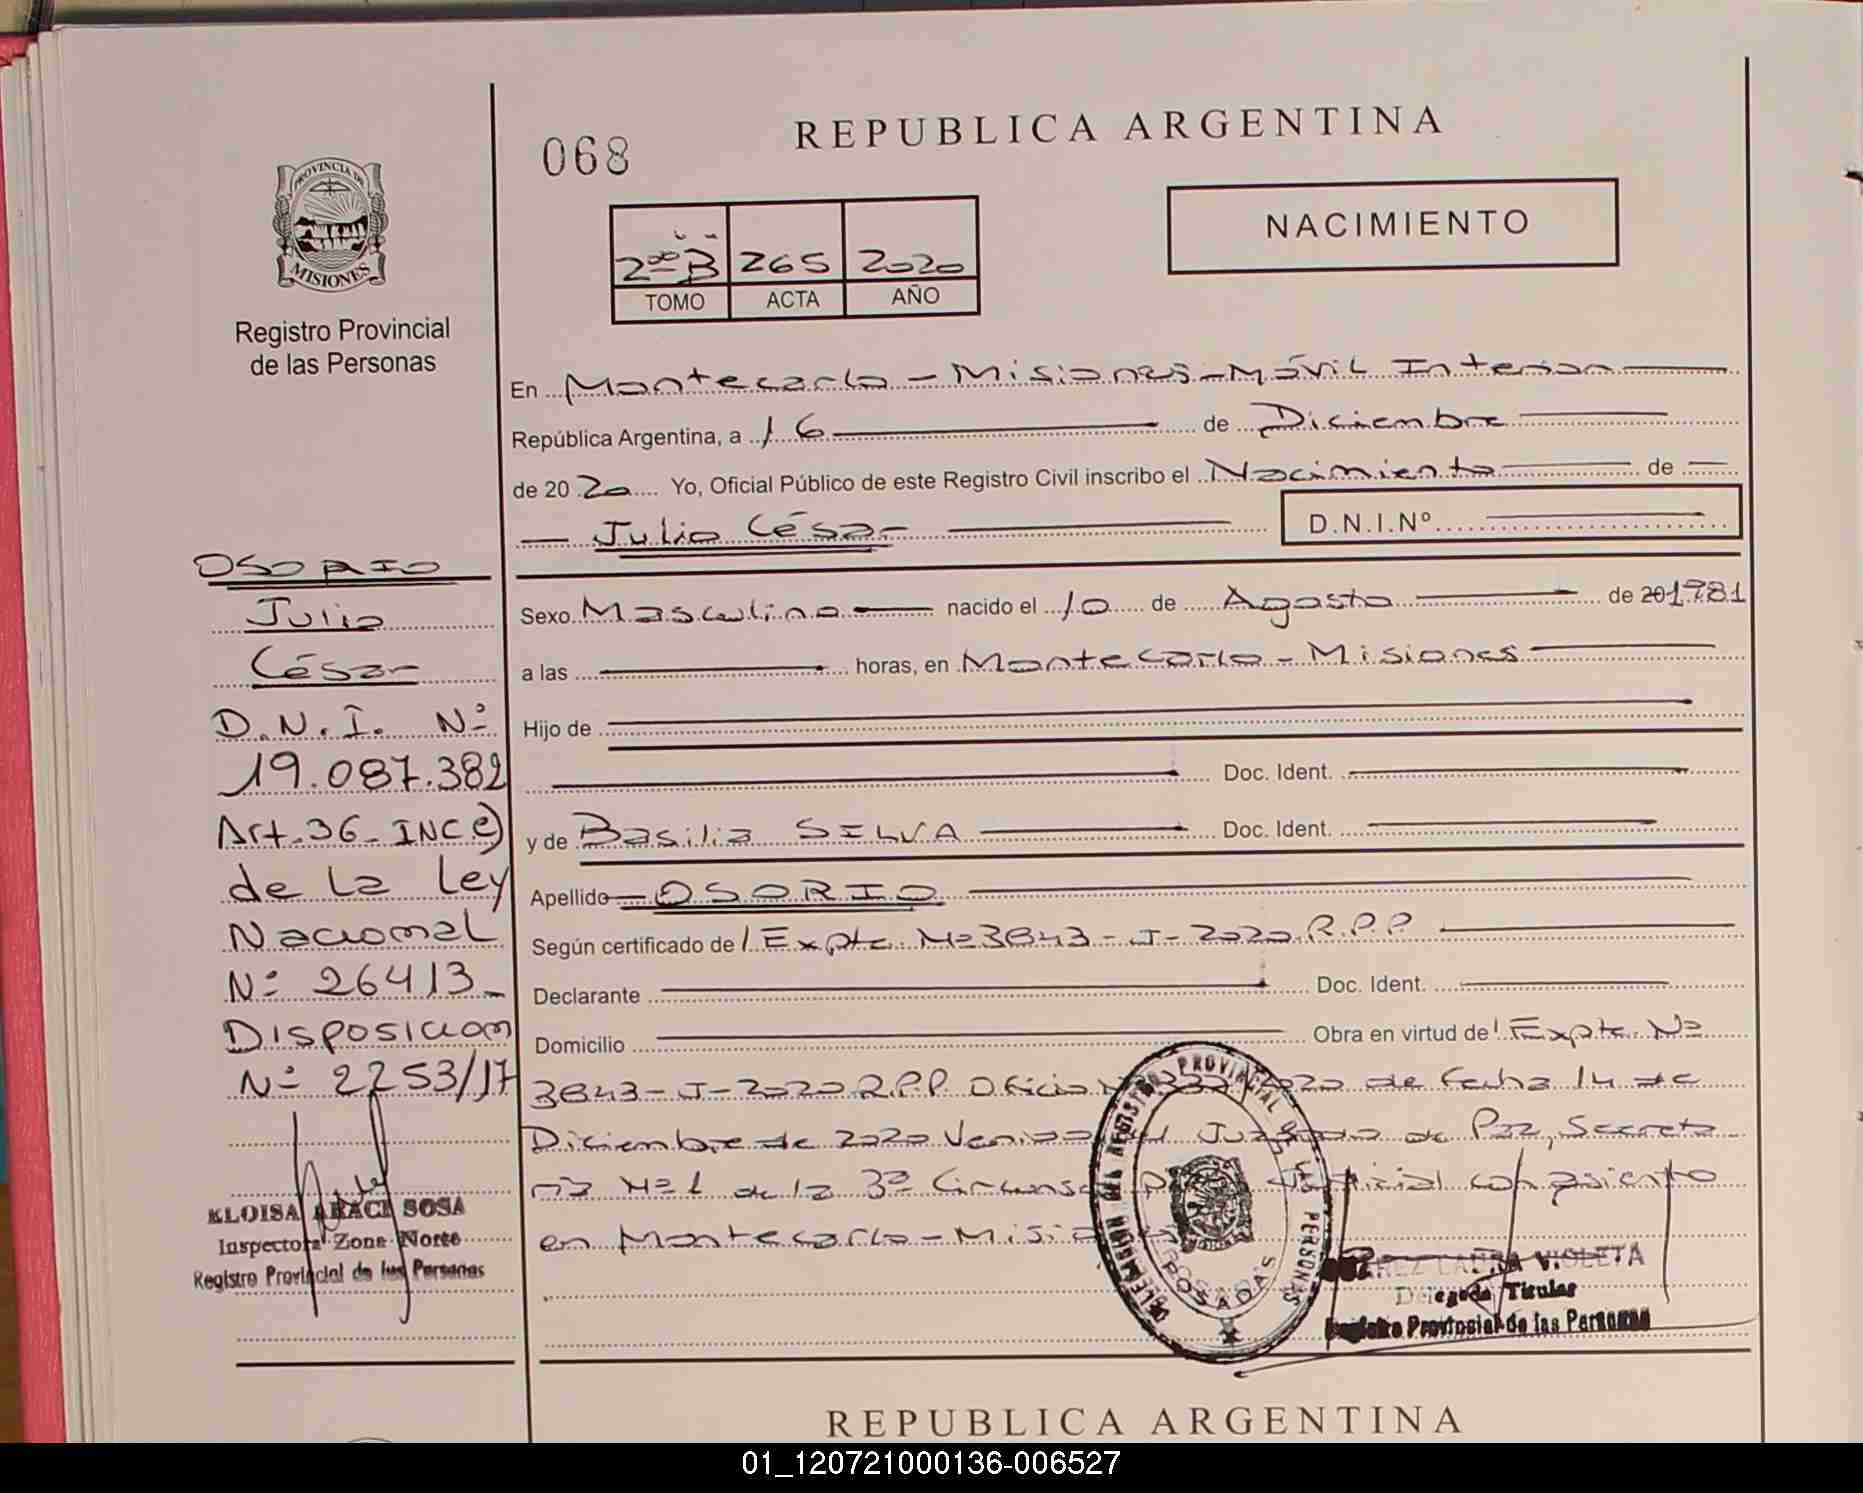 068
REPUBLICA ARGENTINA
NACIMIENTO
2do B 265 2020
TOMO ACTA AÑO
PROVINCIA DE
MISIONES
Registro Provincial
de las Personas
En Montecarlo - Misiones - Móvil Interior
República Argentina, a 16 de Diciembre
de 20 20 Yo, Oficial Público de este Registro Civil inscribo el Nacimiento de
Julio César D.N.I.Nº
Sexo Masculino nacido el 10 de Agosto de 201981
a las horas, en Montecarlo - Misiones
Hijo de
Doc. Ident.
y de Basilia SILVA Doc. Ident.
Apellido OSORIO
Según certificado de Expte. Nº 3843-J-2020 R.P.P
Declarante Doc. Ident.
Domicilio Obra en virtud de Expte. Nº
3843-J-2020 R.P.P. Oficio 2020 de fecha 14 de
Diciembre de 2020 Venido del Juzgado de Paz, Secreta
ría Nº 1 de la 3ª Judicial con asiento
en Montecarlo - Misiones
OSORIO
Julio
César
D.N.I. Nº
19.087.382
Art. 36 - INC e)
de la Ley
Nacional
Nº 26413_
DISPOSICION
Nº 2253/17
ELOISA ARACI SOSA
Inspectora Zona Norte
Registro Provincial de las Personas
DELEGACION DEL REGISTRO PROVINCIAL DE LAS PERSONAS
POSADAS
LAURA VIOLETA
Delegada Titular
Registro Provincial de las Personas
REPUBLICA ARGENTINA
01_120721000136-006527